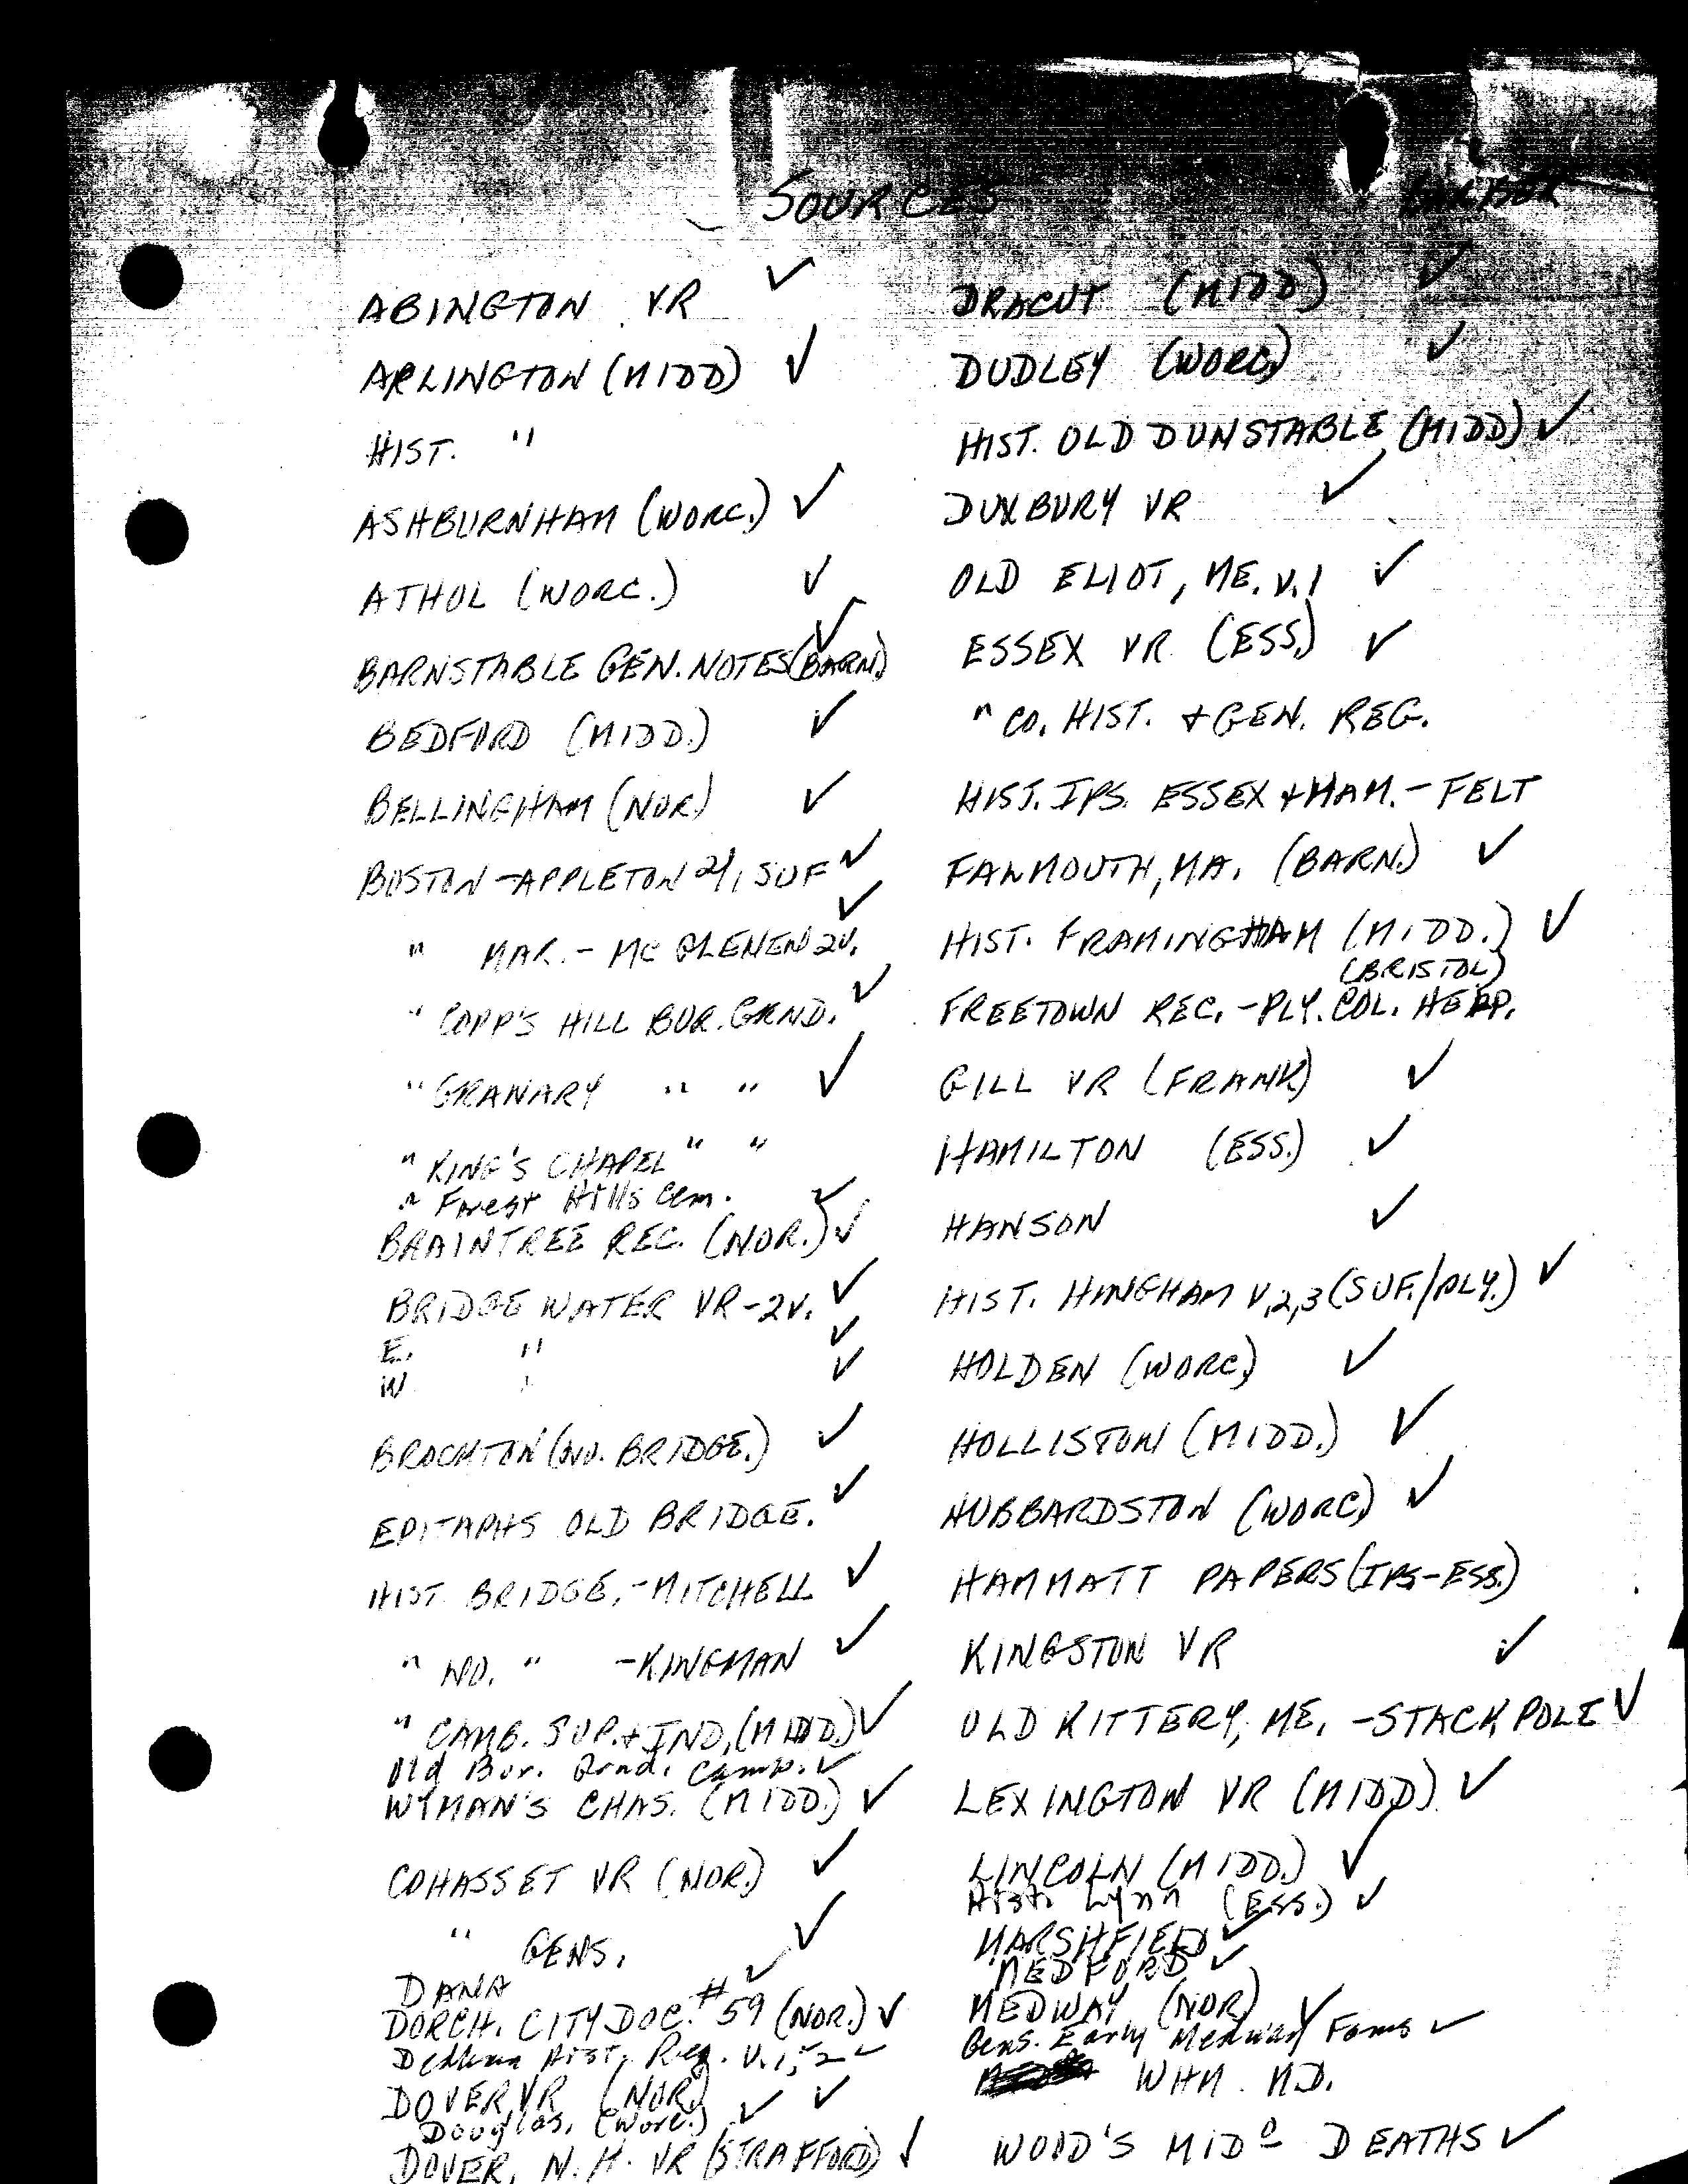 SOURCES
ABINGTON VR ✓
ARLINGTON (MIDD) ✓
HIST. "
ASHBURNHAM (WORC.) ✓
ATHOL (WORC.) ✓
BARNSTABLE GEN. NOTES (BARN.) ✓
BEDFORD (MIDD.) ✓
BELLINGHAM (NOR.) ✓
BOSTON - APPLETON 2/, SUF ✓
" MAR. - MC GLENEN 2V. ✓
" COPP'S HILL BUR. GRND. ✓
" GRANARY " " ✓
" KING'S CHAPEL " "
" Forest Hills Cem. ✓
BRAINTREE REC. (NOR.) ✓
BRIDGEWATER VR - 2V. ✓
E. " ✓
W. " ✓
BROCKTON (NO. BRIDGE.) ✓
EPITAPHS OLD BRIDGE. ✓
HIST. BRIDGE. - MITCHELL ✓
" NO. " - KINGMAN ✓
" CAMB. SUP. + IND, (MIDD.) ✓
Old Bur. Grnd. Camb. ✓
WYMAN'S CHAS. (MIDD.) ✓
COHASSET VR (NOR.) ✓
" GENS. ✓
DANA ✓
DORCH. CITY DOC. #59 (NOR.) ✓
Dedham Hist. Reg. V. 1, 2 ✓
DOVER VR (NOR.) ✓
Douglas, (Worc.) ✓
DOVER, N.H. VR (STRAFFORD) ✓
DRACUT (MIDD) ✓
DUDLEY (WORC.) ✓
HIST. OLD DUNSTABLE (MIDD) ✓
DUXBURY VR ✓
OLD ELIOT, ME. V. 1 ✓
ESSEX VR (ESS.) ✓
" CO. HIST. + GEN. REG.
HIST. IPS. ESSEX + HAM. - FELT
FALMOUTH, MA. (BARN.) ✓
HIST. FRAMINGHAM (MIDD.) ✓
(BRISTOL)
FREETOWN REC. - PLY. COL.
GILL VR (FRANK) ✓
HAMILTON (ESS.) ✓
HANSON ✓
HIST. HINGHAM V, 2, 3 (SUF./PLY.) ✓
HOLDEN (WORC) ✓
HOLLISTON (MIDD.) ✓
HUBBARDSTON (WORC) ✓
HAMMATT PAPERS (IPS-ESS.)
KINGSTON VR ✓
OLD KITTERY, ME. - STACKPOLE ✓
LEXINGTON VR (MIDD) ✓
LINCOLN (MIDD.) ✓
Hist. Lynn (ESS.) ✓
MARSHFIELD ✓
MEDFORD ✓
MEDWAY (NOR) ✓
Gens. Early Medway Fams ✓
WHM. MD.
WOOD'S MID⁰ DEATHS ✓